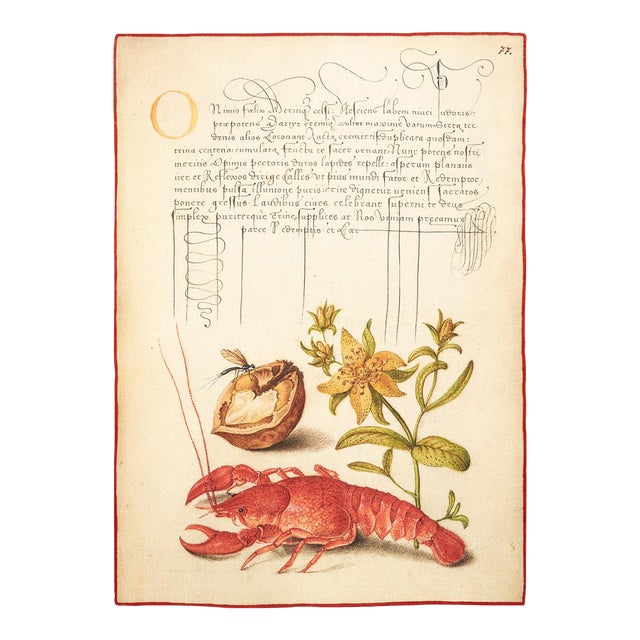 77.
O Nimis fœlix Meritiq3 celsi: Nesciens labem niuei pudoris:
præpotens Martyr eremiq3 cultor maxime Vatum. Serta ter
denis alios Coronant Aucta crementis: duplicata quosdam:
trina centeno: cumulata fructu te sacer ornant. Nunc potens nostri
meritis Opimis pectoris duros lapides repelle: asperum planans
iter et Reflexos dirige Calles. Vt pius mundi Sator et Redemptor,
mentibus pulsa: illuuione puris: rite dignetur veniens sacratos
ponere gressus. Laudibus ciues celebrant superni te deus
simplex pariterque Trine, supplices at Nos Veniam precamur
parce Redemptis et Cæt